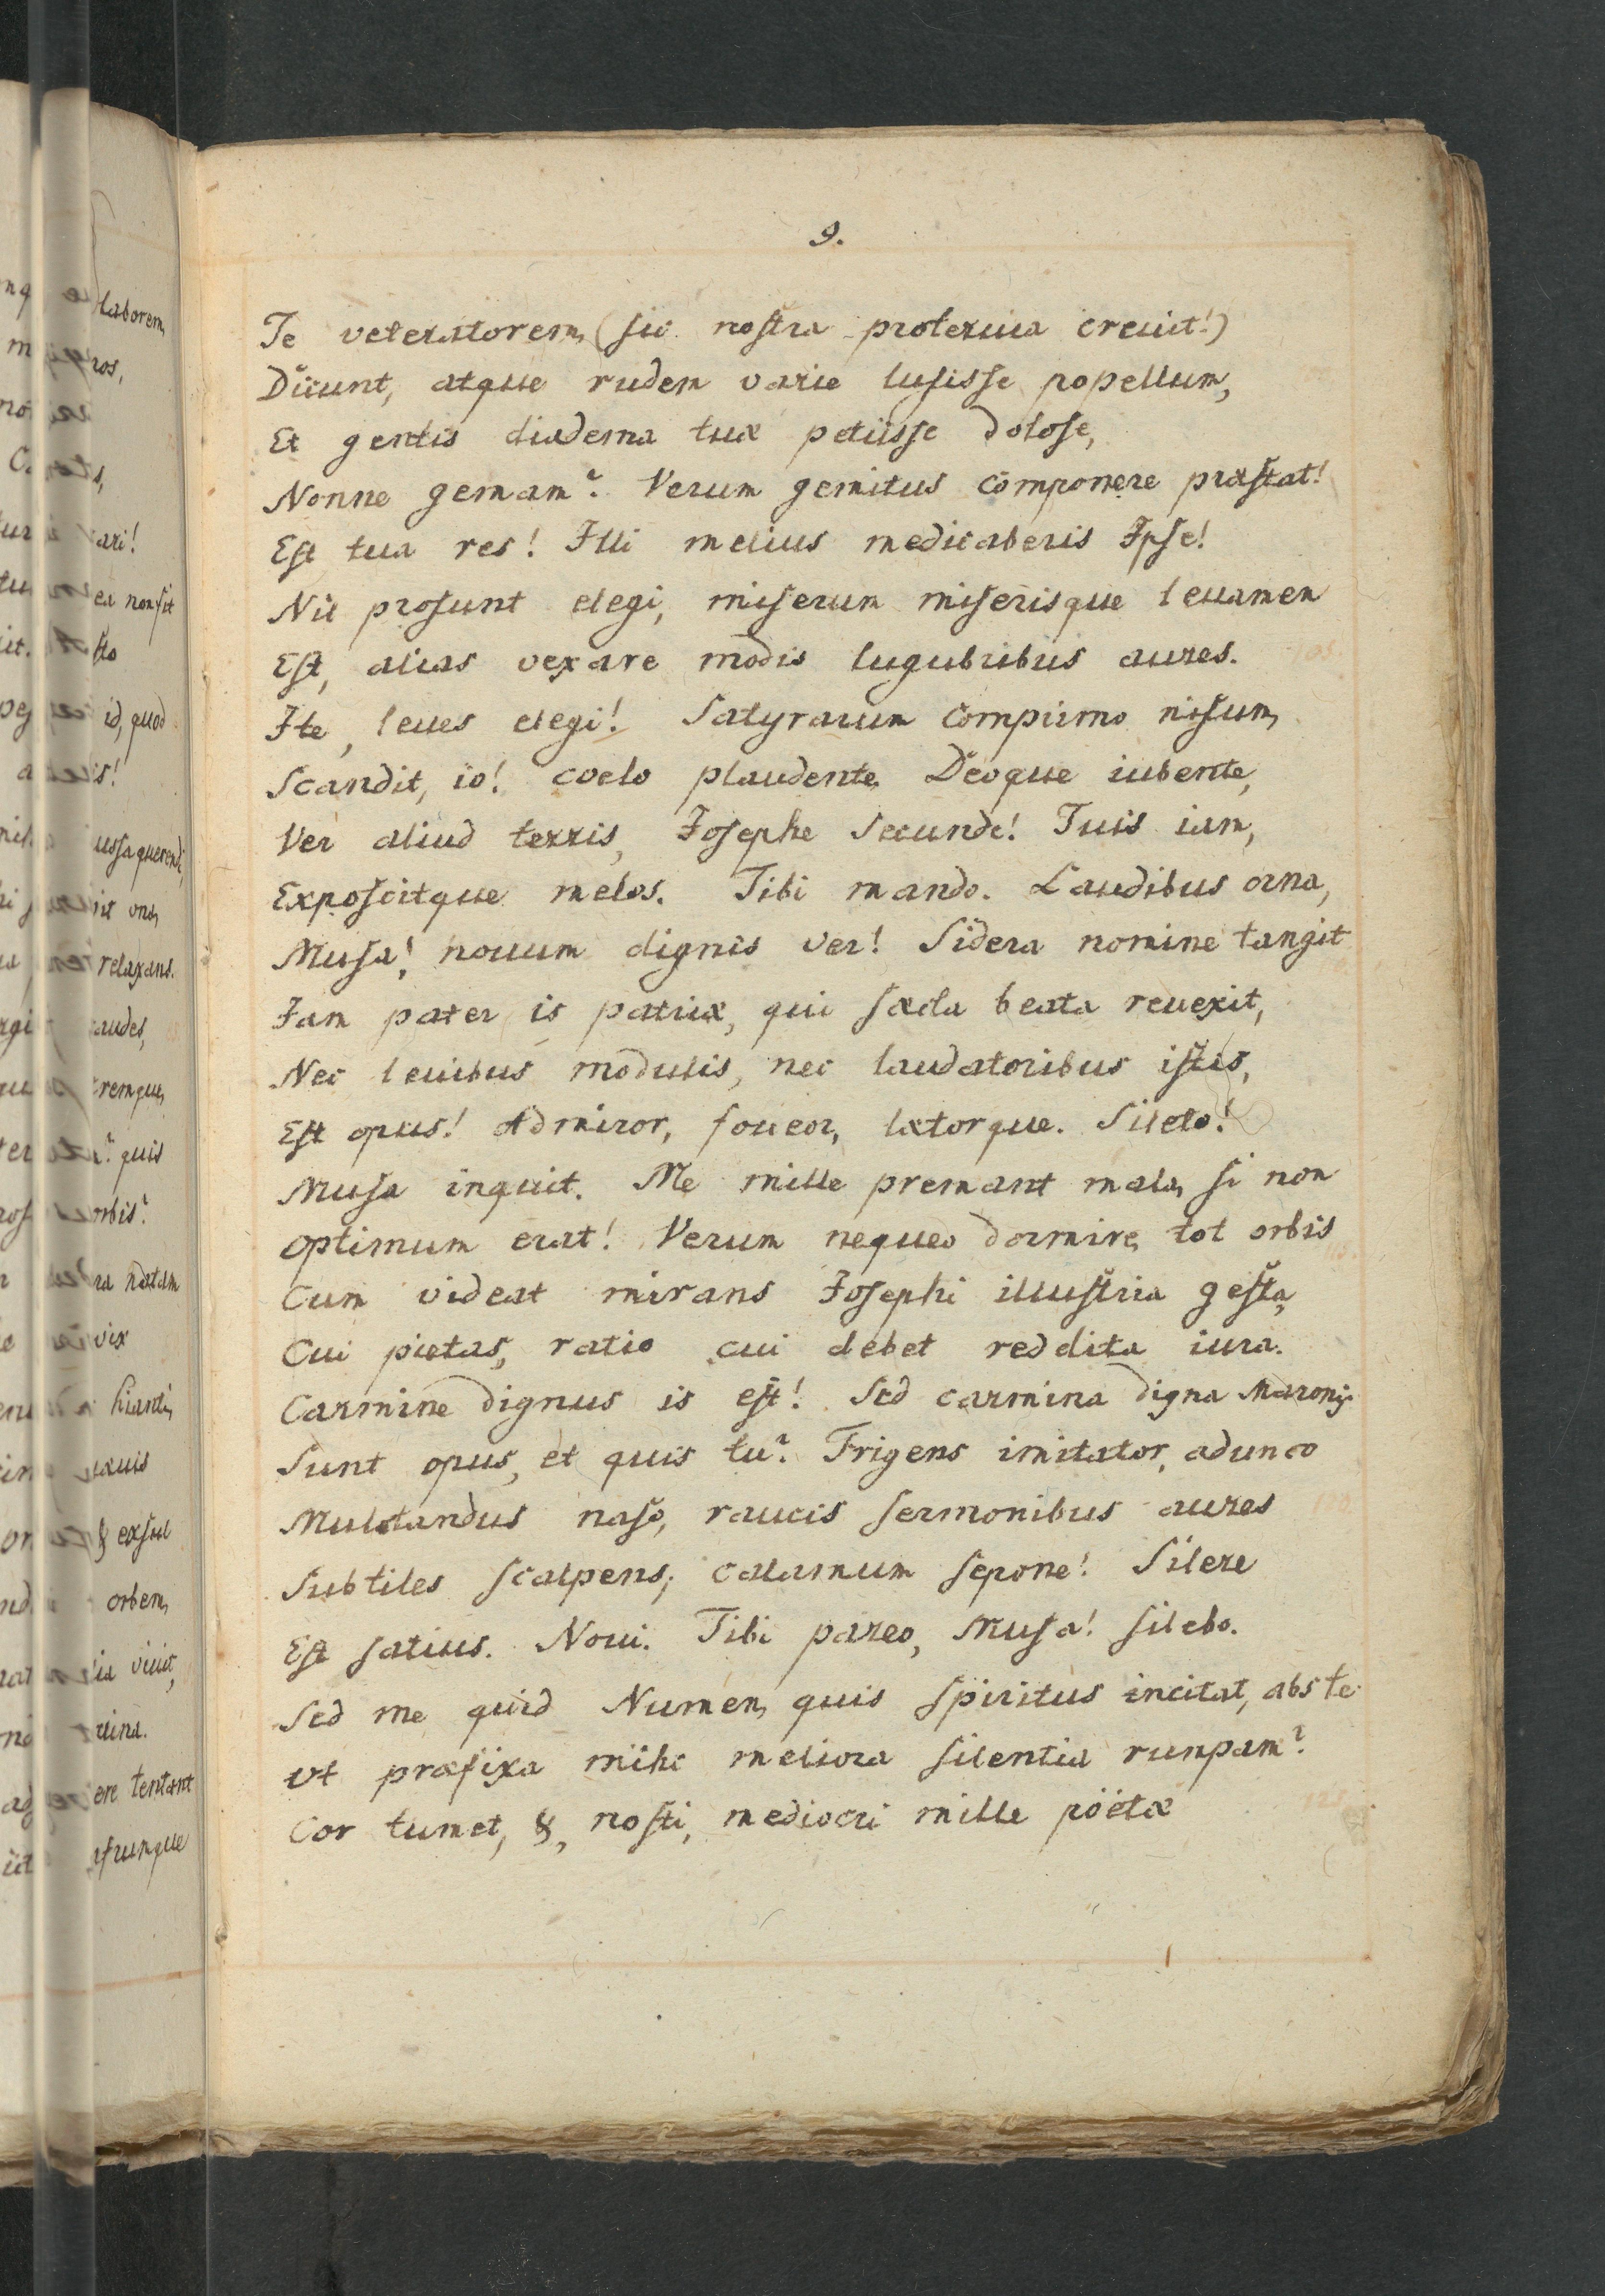 9.
Te veteratorem (sic nostra proteruia creuit!)
Dicunt, atque rudem varie lusisse popellum,
Et gentis diadema tuæ petiisse dolose,
Nonne gemam? Verum gemitus componere præstat!
Est tua res! Illi melius medicaberis Ipse!
Nil prosunt elegi, miserum miserisque leuamen
Est, alias vexare modis lugubribus aures.
Ite, leues elegi! Satyrarum comprimo nisum,
Scandit, io! coelo plaudente Deoque iubente,
Ver aliud terris, Josephe Secunde! Tuis iam,
Exposcitque melos. Tibi mando. Laudibus orna,
Musa! nouum dignis ver! Sidera nomine tangit
Jam pater is patriæ, qui sæcla beata reuexit,
Nec leuibus modulis, nec laudatoribus istis,
Est opus! Admiror, foueor, lætorque. Sileto!
Musa inquit. Me mille premant mala, si non
Optimum erat! Verum nequeo dormire, tot orbis
Cum videat mirans Josephi illustria gesta,
Cui pietas, ratio cui debet reddita iura.
Carmine dignus is est! Sed carmina digna Maronis
Sunt opus, et quis tu? Frigens imitator, adunco
Mulctandus naso, raucis sermonibus aures
Subtiles scalpens; calamum sepone! Silere
Est satius. Noui. Tibi pareo, Musa! silebo.
Sed me quid Numen, quis spiritus incitat, abs te
Vt præfixa mihi meliora silentia rumpam?
Cor tumet, &, nosti, mediocri mille poëtæ
laborem,
ros,
ari!
ea non sit
sto
id, quod
is!
ussa querendi,
relaxans.
audes,
remque,
quis
orbis?
ra natam
vix
hianti,
& exsul
orbem,
ia viuit,
ruina.
ere tentant
105.
125.